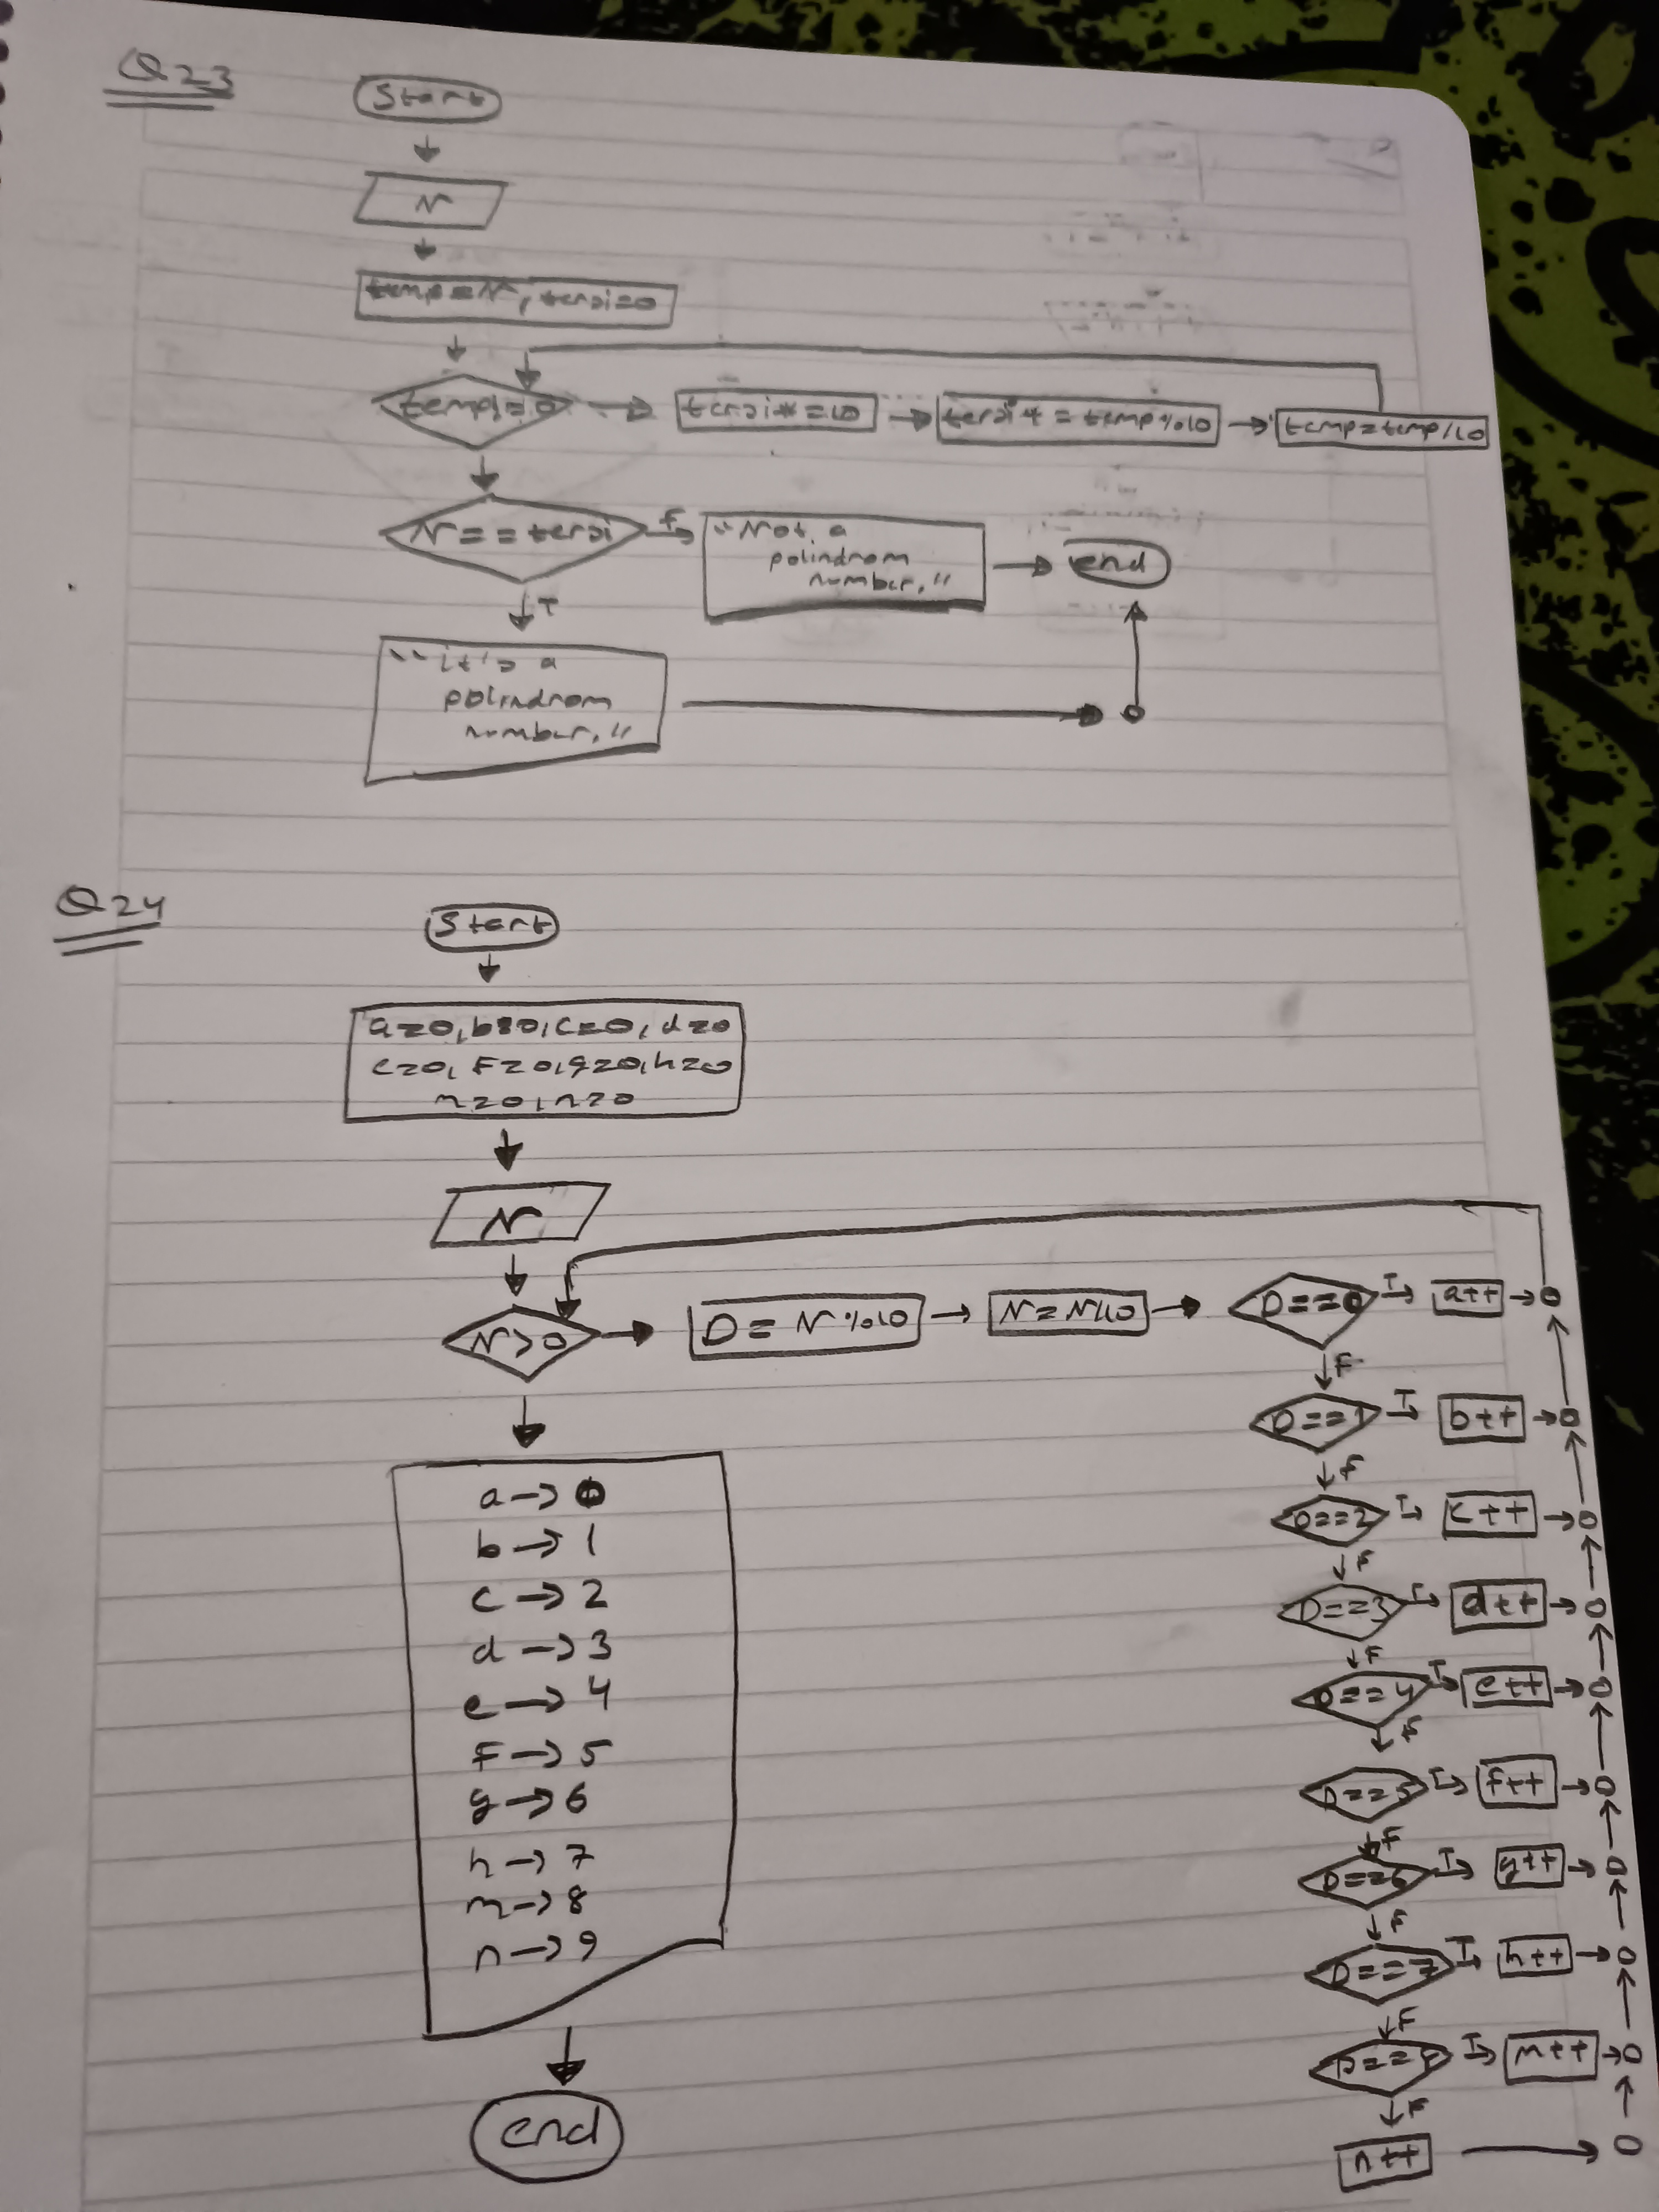 Q23
Start
N
temp=N, tersi=0
temp!=0
tersi*=10
tersi+=temp%10
temp=temp/10
N==tersi
F
"Not a
polindrom
number."
end
T
"it's a
polindrom
number."
Q24
Start
a=0, b=0, c=0, d=0
e=0, F=0, g=0, h=0
m=0, n=0
N
N>0
D=N%10
N=N/10
D==0
T
a++
F
D==1
T
b++
F
D==2
T
c++
F
D==3
T
d++
F
D==4
T
e++
F
D==5
T
f++
F
D==6
T
g++
F
D==7
T
h++
F
D==8
T
m++
F
n++
a→0
b→1
c→2
d→3
e→4
F→5
g→6
h→7
m→8
n→9
end